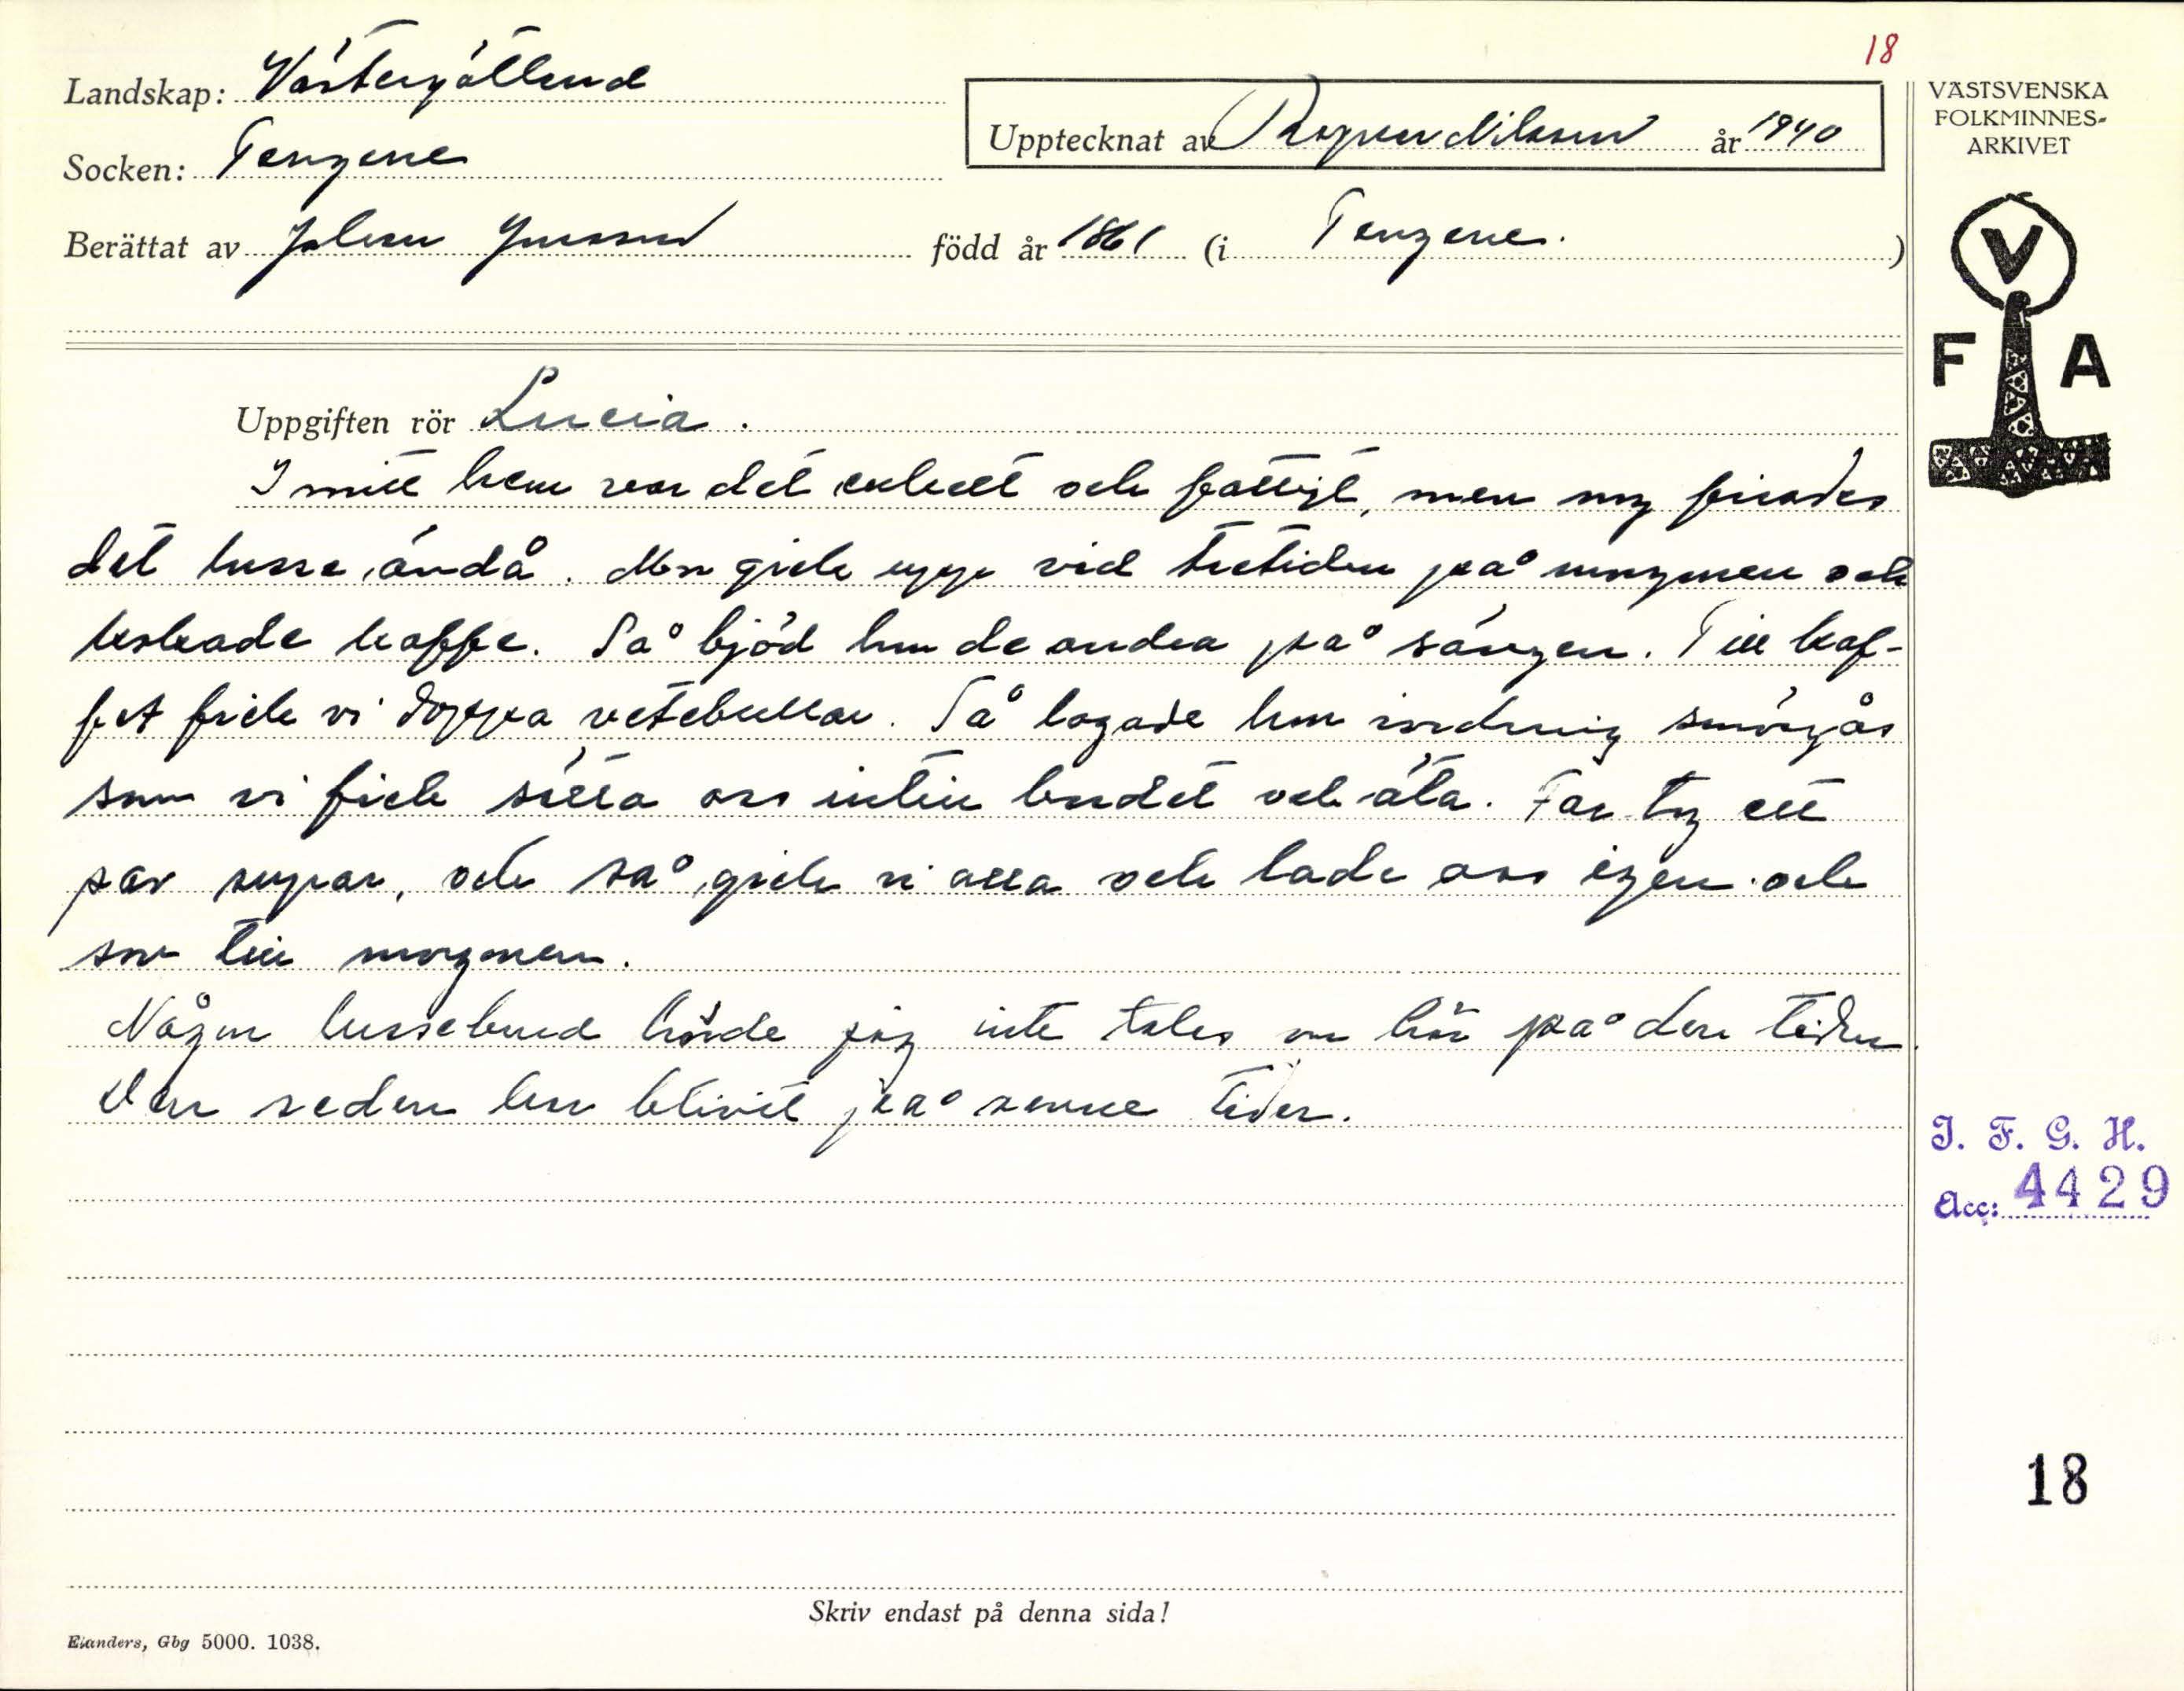 18
Landskap: Västergötland
Upptecknat av Ragnar Nilsson år 1940
VÄSTSVENSKA
FOLKMINNES-
ARKIVET
Socken: Tengene
Berättat av Johan Jonsson född år 1861 (i Tengene.)
V
F A
Uppgiften rör Lucia.
I mitt hem var det enkelt och fattigt, men nog firades
det lusse ändå. Mor gick upp vid tretiden på morgonen och
kokade kaffe. Så bjöd hon de andra på sängen. Till kaf-
fet fick vi doppa vetebullar. Så lagade hon iordning smörgås
som vi fick sätta oss intill bordet och äta. Far tog ett
par supar, och så gick vi alla och lade oss igen och
sov till morgonen.
Någon lussebrud hörde jag inte talas om här på den tiden.
Den seden har blivit på senare tider.
I. F. G. H.
Acc: 4429
18
Skriv endast på denna sida!
Elanders, Gbg 5000. 1038.